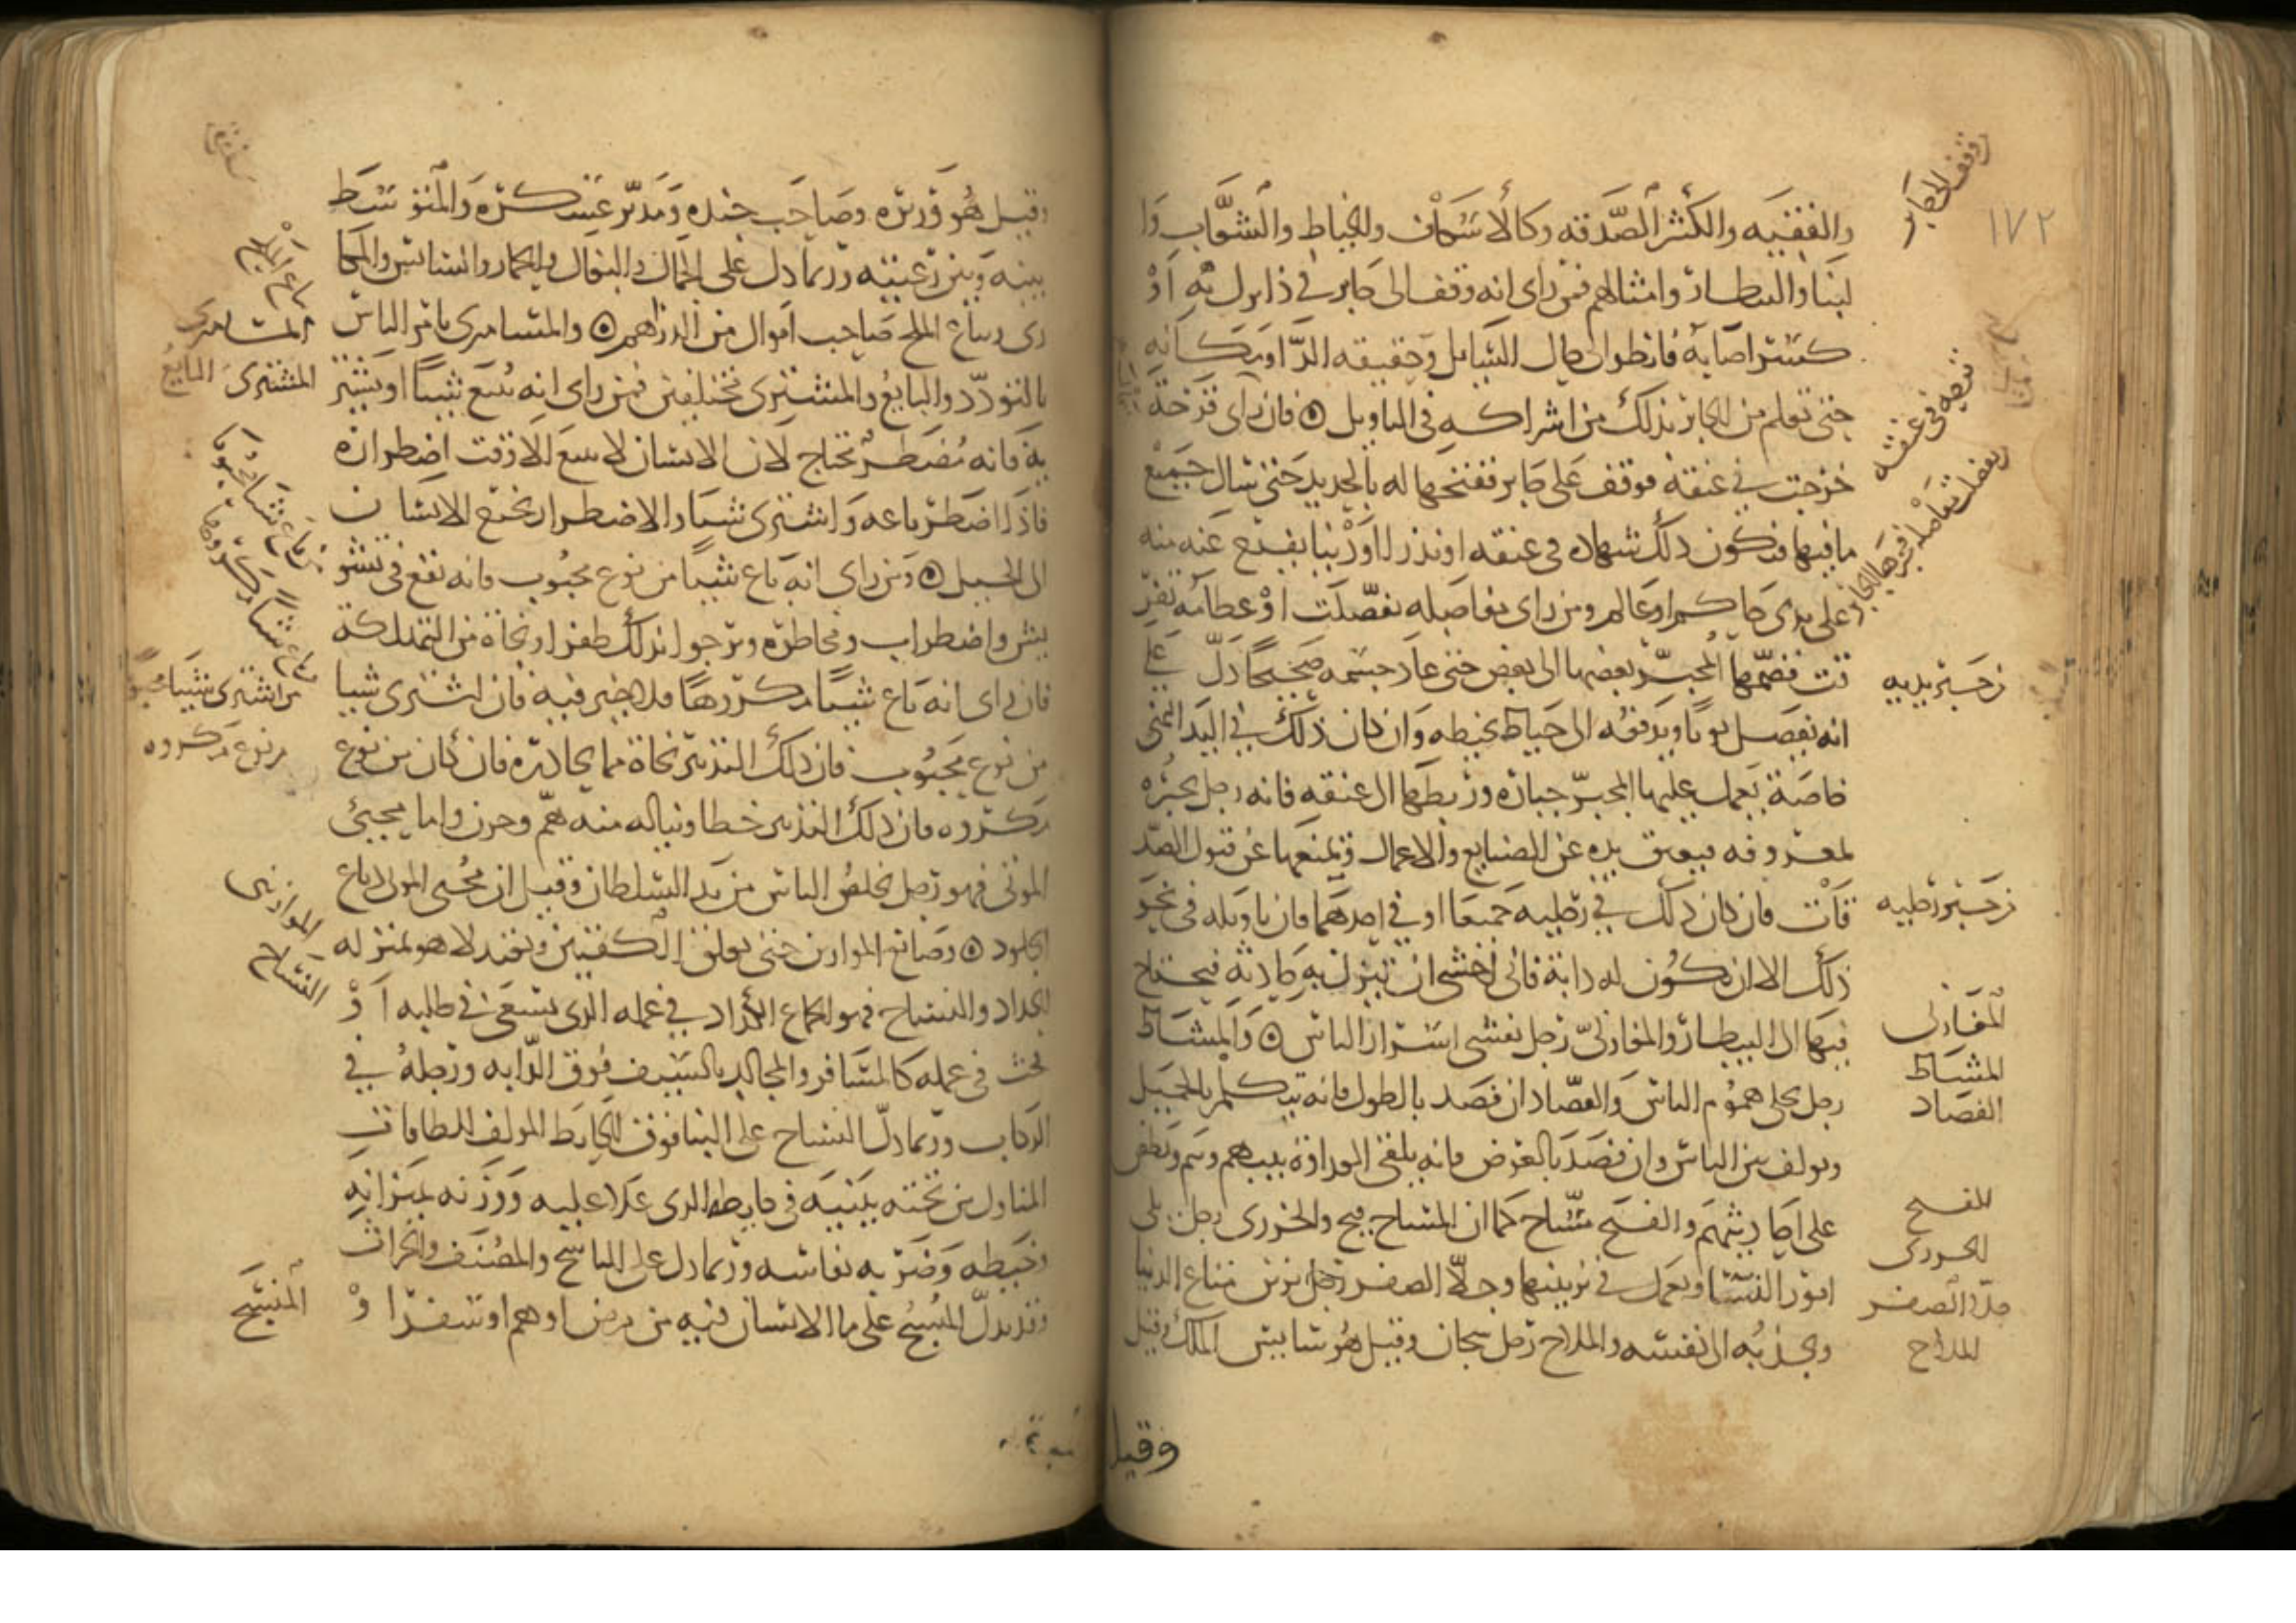 ١٧٢
والفقيه والكثير الصدقه وكالاسكاف والخياط والشعاب وا
لبنا والبيطار وامثالهم فمن راى انه وقف الى جابر في ذا نزل به او
كسر اصابه فانظر الى حال السايل وحقيقه الدا ومكانه
حتى تعلم من الجابر بذلك من اشراكه فى التاويل ۞ فان راى قرحة
خرجت في عنقه فوقف على جابر ففتحها له بالحديد حتى سال جميع
ما فيها فتكون ذلك شهاده فى عنقه او نذر ا او دينا يفرج عنه منه
على يدى حاكم او عالم ومن راى مفاصله تفصلت او عظامه تفر
قت فضمها المجبر بعضها الى بعض حتى عاد جسمه صحيحا دل على
انه يفصل ثوبا ويدفعه الى خياط يخيطه وان كان ذلك في اليد اليمنى
خاصة يعمل عليها المجبر جباره وربطها الى عنقه فانه رجل يجبره
لمعروفه فيعوق يده عن الصنايع والاعمال ويمنعها عن قبول الصد
قات فان كان ذلك في رجليه جميعا او في احدهما فان تاويله فى نحو
ذلك الا ان تكون له دابة فانى اخشى ان تنزل به حادثه فيحتاج
فيها الى البيطار والمغازلى رجل يفشى اسرار الناس ۞ والمشاط
رجل يجلى هموم الناس والفصاد ان فصد بالطول فانه يتكلم بالجميل
ويولف بين الناس وان فصد بالعرض فانه يلقى العداوة بينهم وينم ويطعن
على احاديثهم والفسح مساح كما ان المساح فسح والخرزى رجل يلى
امور النسا ويعمل في تزيينها وجلا الصفر رجل يزين متاع الدنيا
ويجذبه الى نفسه والملاح رجل سجان وقيل هو سايس الملك وقيل
وقيل
وقف الى جابر
قرحه فى عنقه
تفصلت مفاصله فجبرها الجابر
من جبر يديه
من جبر رجليه
المغازلى
المشاط
الفصاد
الفسح
الخرزى
جلا الصفر
الملاح
وقيل هو وزيره وصاحب جنده ومدبر عسكره والمتوسط
بينه وبين رعيته وربما دل على الجمال والبغال والحمار والسايس والمكا
رى وبياع الملح صاحب اموال من الدراهم ۞ والمسامرى يامر الناس
بالتودد والبايع والمشترى مختلفين فمن راى انه يبيع شيئا او يشتر
يه فانه مضطر محتاج لان الانسان لا يبيع الا وقت اضطراره
فاذا اضطر باعه واشترى شيئا والاضطرار يحوج الانسان
الى الحيل ۞ ومن راى انه باع شيئا من نوع محبوب فانه يقع فى تشو
يش واضطراب ومخاطره ويرجوا بذلك ظفرا ونجاة من التهلكة
فان راى انه باع شيئا مكروها فلا خير فيه فان اشترى شيئا
من نوع محبوب فان ذلك التدبير نجاة مما يحاذره فان كان من نوع
مكروه فان ذلك التدبير خطا ويناله منه هم وحزن واما محيى
الموتى فهو رجل يخلص الناس من يد السلطان وقيل ان محيى الموتى دباغ
الجلود ۞ وصانع الموازين حتى يولف الكفتين ويعتدلا هو بمنزله
الحداد والنساج فهو الجماع الكداد في عمله الذى يسعى في طلبه او
يحث فى عمله كالمسافر والمجالد بالسيف فوق الدابه ورجله في
الركاب وربما دل النساج على البنا فوق الحايط المولف للطاقات
المناول من تحته يبنيه فى حايطه الذى علا عليه ووزنه بميزانه
وخيطه وضربه بفاسه وربما دل على الناسخ والمصنف والحراث
وقد يدل المنسج على ما الانسان فيه من مرض او هم او سفر ا و
المسامرى
البايع
المشترى
من باع شيا محبوبا
باع شيا مكروها
من اشترى شيا محبوبا
من نوع مكروه
الموازينى
النساج
المنسج